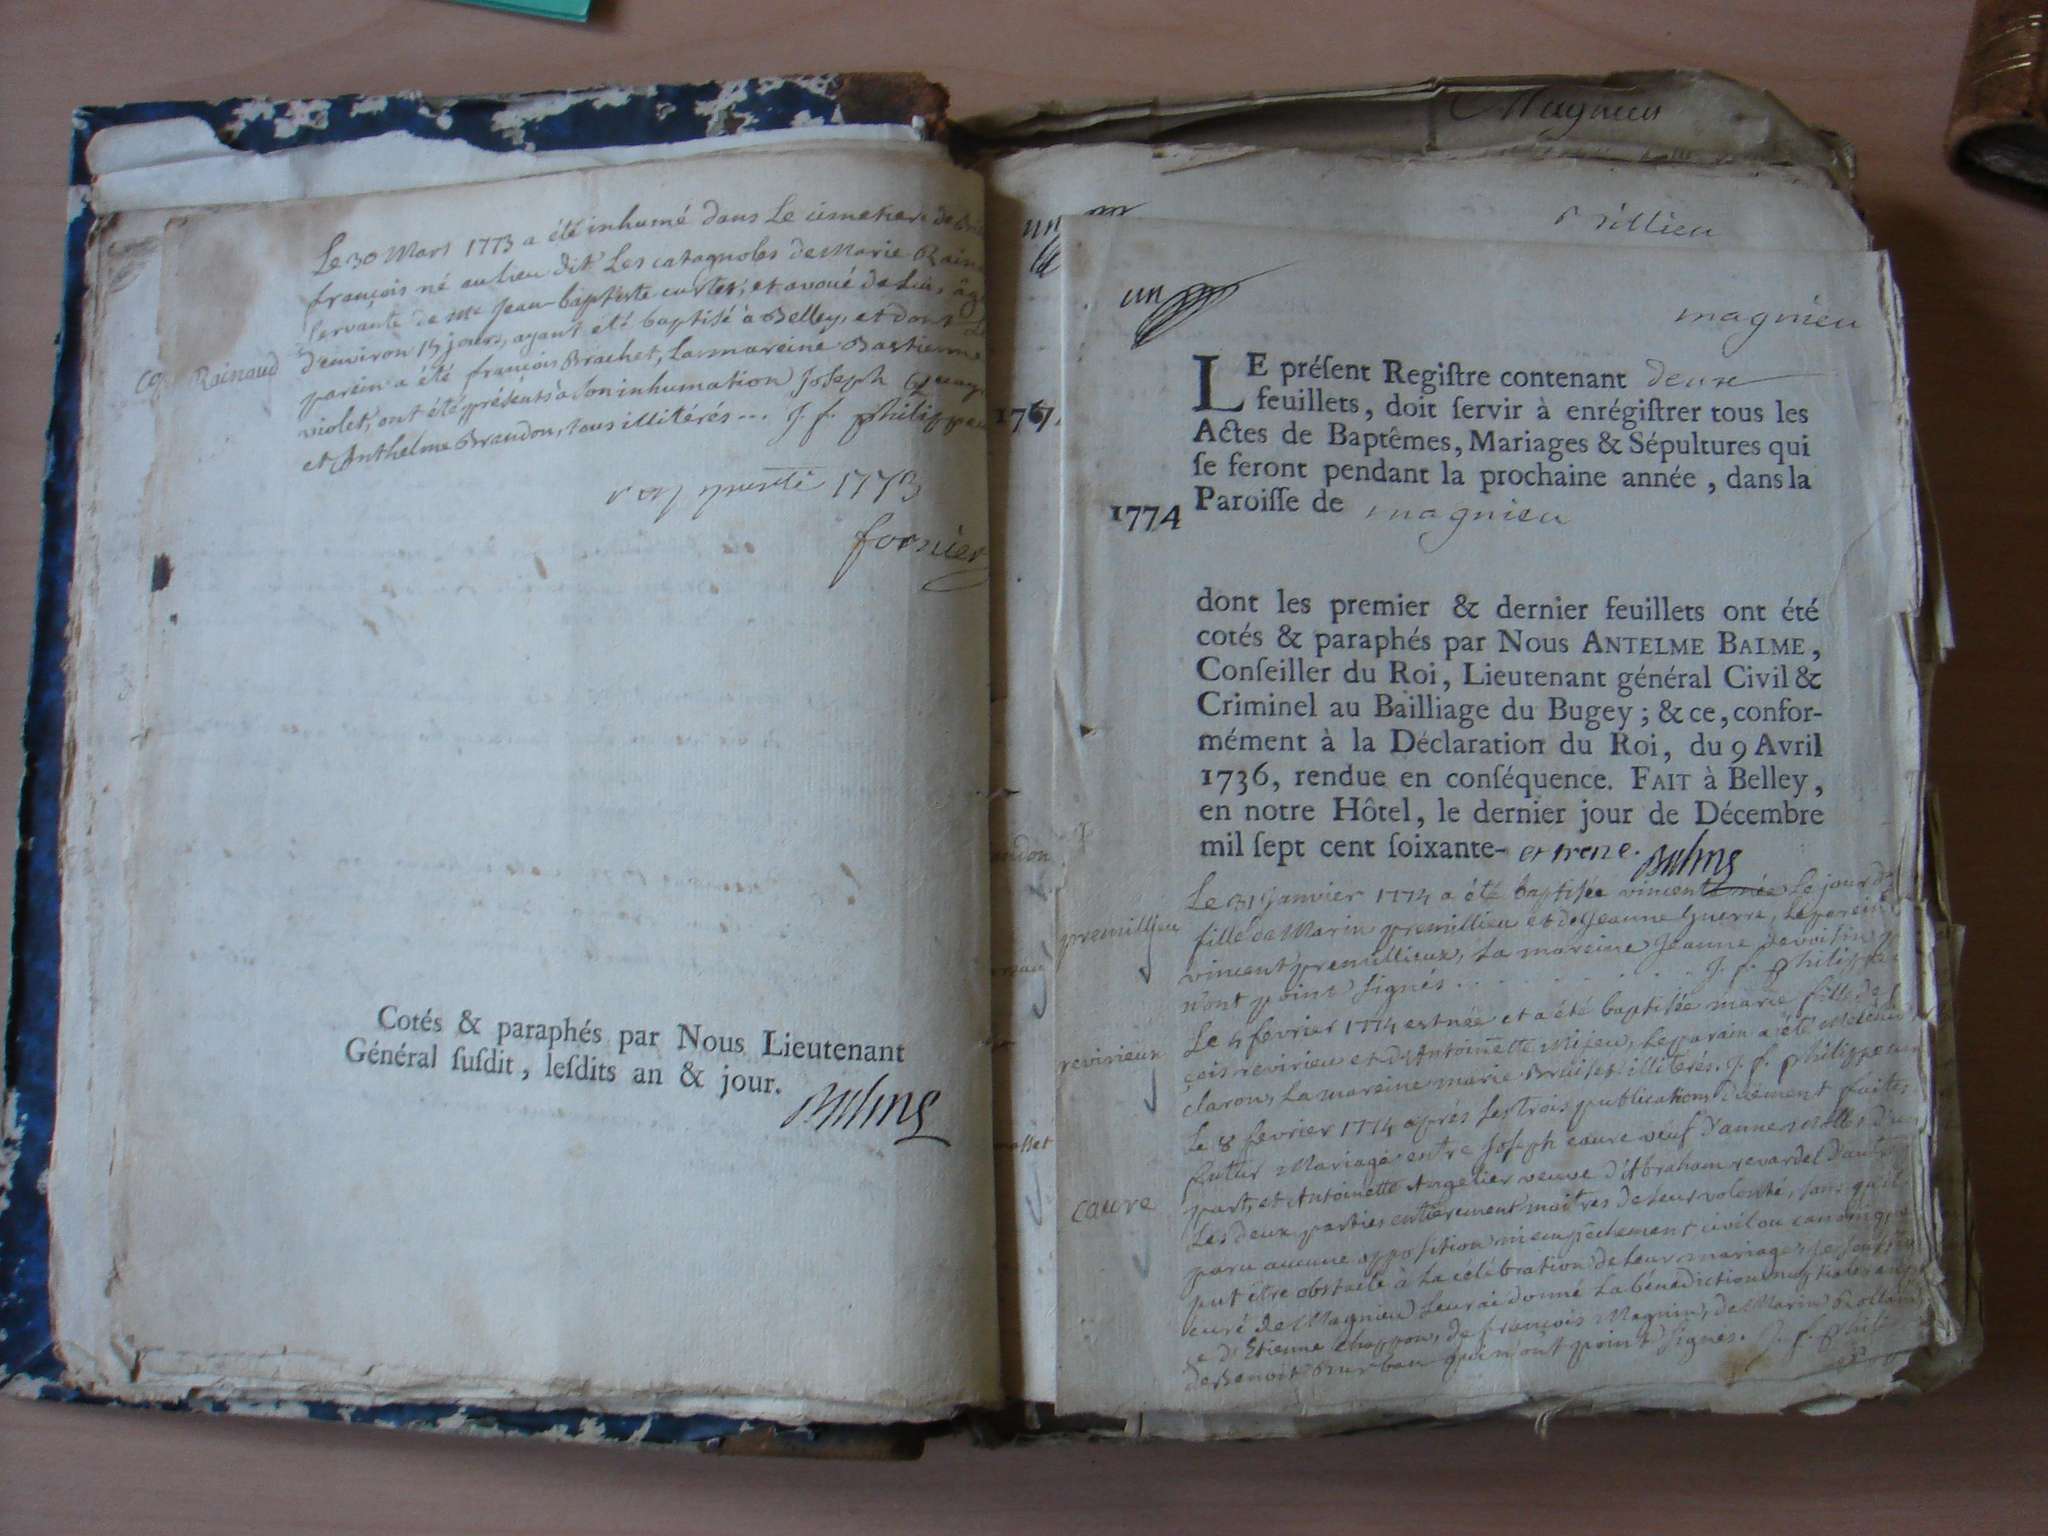 Le 30 Mars 1773 a été inhumé dans le cimetiere de
françois né au lieu dit Les catagnoles de Marie
servante de Me Jean-baptiste curtet, et avoué de lui, âgé
Rainaud
d'environ 15 jours, ayant été baptisé à Belley, et dont le
parein a été françois Brachet, la mareine Bastienne
violet, ont été présents à son inhumation Joseph
et Anthelme Brandon, tous illitérés... J. f. philippe
1773
fornier
Cotés & paraphés par Nous Lieutenant
Général ſuſdit, leſdits an & jour.
Balme
Magnieu
un
1767.
un
magnieu
LE préſent Regiſtre contenant deux
feuillets, doit ſervir à enrégiſtrer tous les
Actes de Baptêmes, Mariages & Sépultures qui
ſe feront pendant la prochaine année, dans la
1774
Paroiſſe de magnieu
dont les premier & dernier feuillets ont été
cotés & paraphés par Nous ANTELME BALME,
Conſeiller du Roi, Lieutenant général Civil &
Criminel au Bailliage du Bugey; & ce, confor-
mément à la Déclaration du Roi, du 9 Avril
1736, rendue en conſéquence. FAIT à Belley,
en notre Hôtel, le dernier jour de Décembre
mil ſept cent ſoixante- et treze. Balme
Le 31 janvier 1774 a été baptisée vincente née le jour
premillieu
fille de Marin premillieu et de Jeanne Guerre, le parein
vincent premillieux, la mareine Jeanne
n'ont point signés . . . J. f. philippe
Le 4 fevrier 1774 est née et a été baptisée marie fille de
revirieux
revirieu et d'Antoinette Mijeu, le parain a été
claron, la mareine marie illiterés. J. f. philippe
Le 8 fevrier 1774 après les trois publications dûement faites
futur Mariage entre Joseph caure veuf d'anne
caure
part, et Antoinette Angelier veuve d'Abraham revardel d'autre
Les deux parties entièrement maîtres de leur volonté, sans qu'il
paru aucune opposition ni empêchement civil ou canonique
put être obstacle à la célébration de leur mariage, je
curé de Magnieu leur ai donné la bénédiction nuptiale en
ce d'Etienne chappon, de françois Magnin, de Marin
de Benoit qui n'ont point signés. J. f. phil